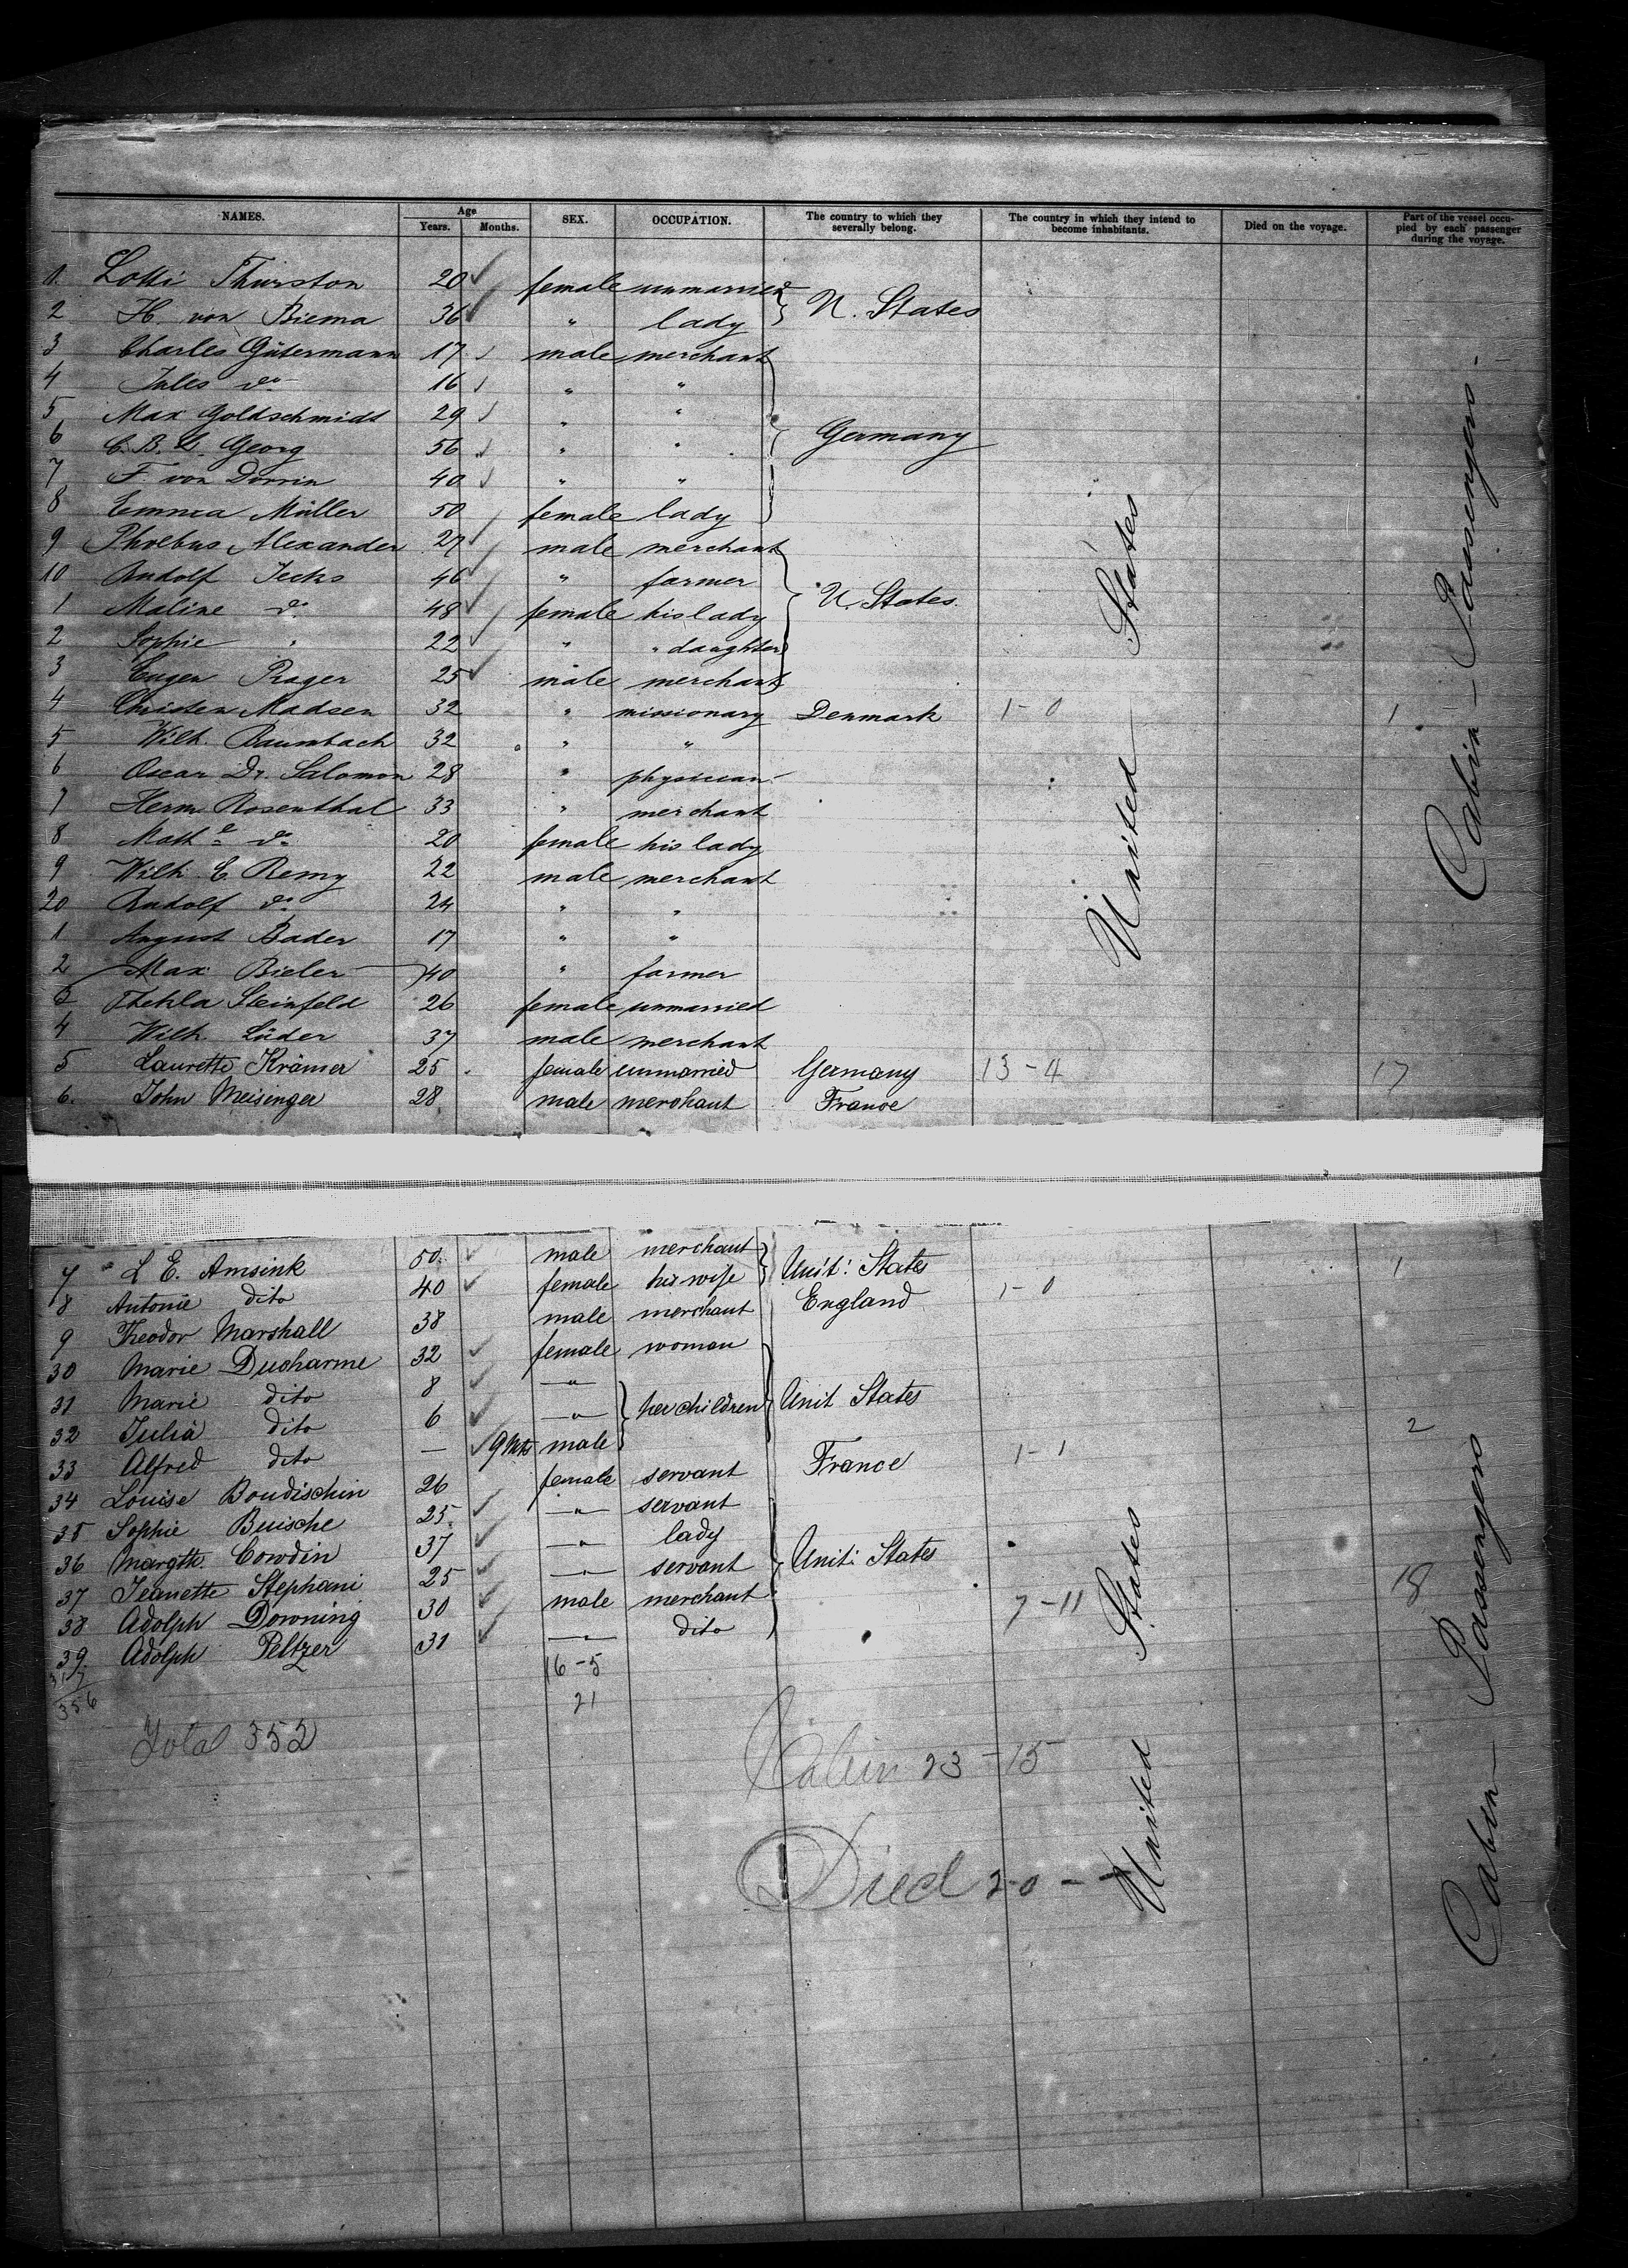 NAMES. Age Years. Months. SEX. OCCUPATION. The country to which they severally belong. The country in which they intend to become inhabitants. Died on the voyage. Part of the vessel occupied by each passenger during the voyage.
1. Lotti Thurston 20 female unmarried
2 H. von Biema 36 " lady U. States
3 Charles Gütermann 17 male merchant
4 Jules do 16 " "
5 Max Goldschmidt 29 " "
6 C. B. L. Georg 56 " " Germany
7 F. von Dorrin 40 " "
8 Emma Müller 50 female lady
9 Phoebus Alexander 27 male merchant
10 Rudolf Jecks 46 " farmer
1 Maline do 48 female his lady U. States.
2 Sophie " 22 " " daughter
3 Eugen Prager 25 male merchant
4 Christen Madsen 32 " missionary Denmark 1-0 1
5 Wilh. Baumbach 32 " "
6 Oscar Dr. Salomon 28 " physician
7 Herm. Rosenthal 33 " merchant
8 Mathe do 20 female his lady
9 Wilh. E. Remy 22 male merchant
20 Rudolf do 24 " "
1 August Bader 17 " "
2 Max Bieler 40 " farmer
3 Thekla Steinfeld 26 female unmarried
4 Wilh. Lüder 37 male merchant
5 Laurette Krämer 25 female unmarried Germany 13-4 17
6. John Meisinger 28 male merchant France
United States
Cabin-Passengers-
7 L E. Amsink 50 male merchant Unit: States 1
8 Antonie dito 40 female his wife
9 Theodor Marshall 38 male merchant England 1-0
30 Marie Ducharme 32 female woman
31 Marie dito 8 " her children Unit States
32 Julia dito 6 "
33 Alfred dito — 9 Mts male 2
34 Louise Boudischin 26 female servant France 1-1
35 Sophie Buische 25 " servant
36 Margth. Cowdin 37 " lady
37 Jeanette Stephani 25 " servant Unit: States
38 Adolph Downing 30 male merchant 7-11 18
39 Adolph Peltzer 31 " dito
317 16-5
356 21
Total 352
Cabin 23-15
Died 2-0 -
United States
Cabin-Passengers